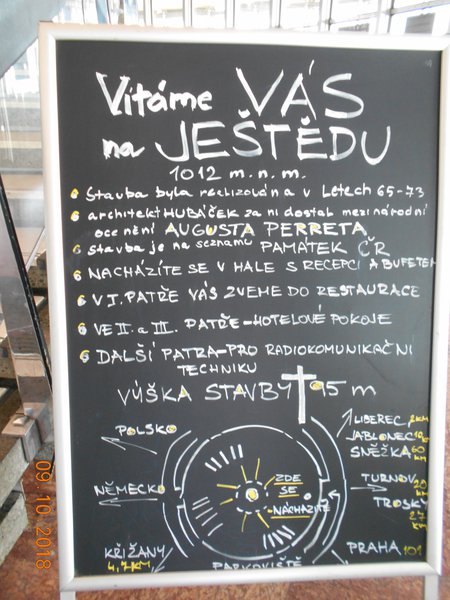 Vítáme VÁS
na JEŠTĚDU
1012 m.n.m.
Stavba byla realizována v Letech 65-73
architekt HUBÁČEK za ni dostal mezinárodní
ocenění AUGUSTA PERRETA
stavba je na seznamu PAMÁTEK ČR
NACHÁZÍTE SE V HALE S RECEPCÍ A BUFETEM
V I. PATŘE VÁS ZVEME DO RESTAURACE
VE II. a III. PATŘE-HOTELOVÉ POKOJE
DALŠÍ PATRA-PRO RADIOKOMUNIKAČNÍ
TECHNIKU
VÝŠKA STAVBY 95 m
POLSKO
LIBEREC
JABLONEC
SNĚŽKA 60 KM
NĚMECKO
ZDE
SE
NACHÁZÍTE
TURNOV 20 KM
TROSKY 27 KM
KŘIŽANY
4,7KM
PARKOVIŠTĚ
PRAHA 101
09.10.2018